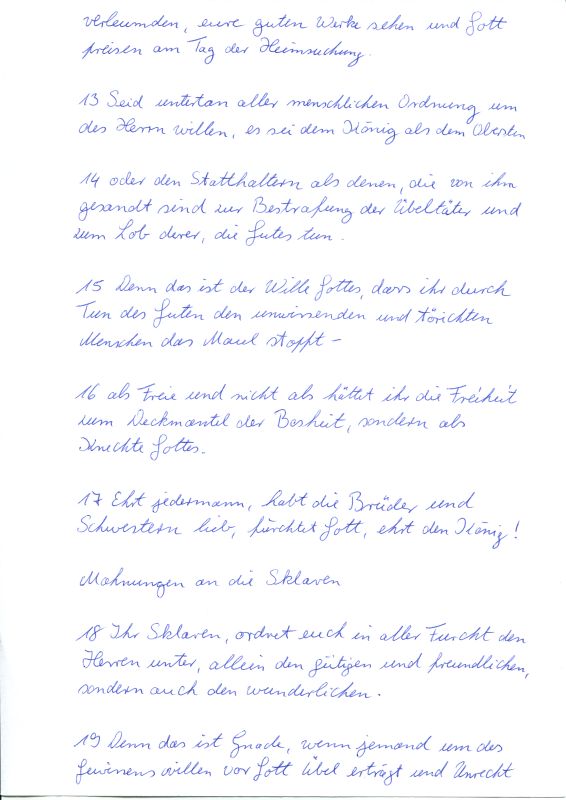 verleumden, eure guten Werke sehen und Gott
preisen am Tag der Heimsuchung.
13 Seid untertan aller menschlichen Ordnung um
des Herrn willen, es sei dem König als dem Obersten
14 oder den Statthaltern als denen, die von ihm
gesandt sind zur Bestrafung der Übeltäter und
zum Lob derer, die Gutes tun.
15 Denn das ist der Wille Gottes, dass ihr durch
Tun des Guten den unwissenden und törichten
Menschen das Maul stopft –
16 als Freie und nicht als hättet ihr die Freiheit
zum Deckmantel der Bosheit, sondern als
Knechte Gottes.
17 Ehrt jedermann, habt die Brüder und
Schwestern lieb, fürchtet Gott, ehrt den König!
Mahnungen an die Sklaven
18 Ihr Sklaven, ordnet euch in aller Furcht den
Herren unter, allein den gütigen und freundlichen,
sondern auch den wunderlichen.
19 Denn das ist Gnade, wenn jemand um des
Gewissens willen vor Gott Übel erträgt und Unrecht